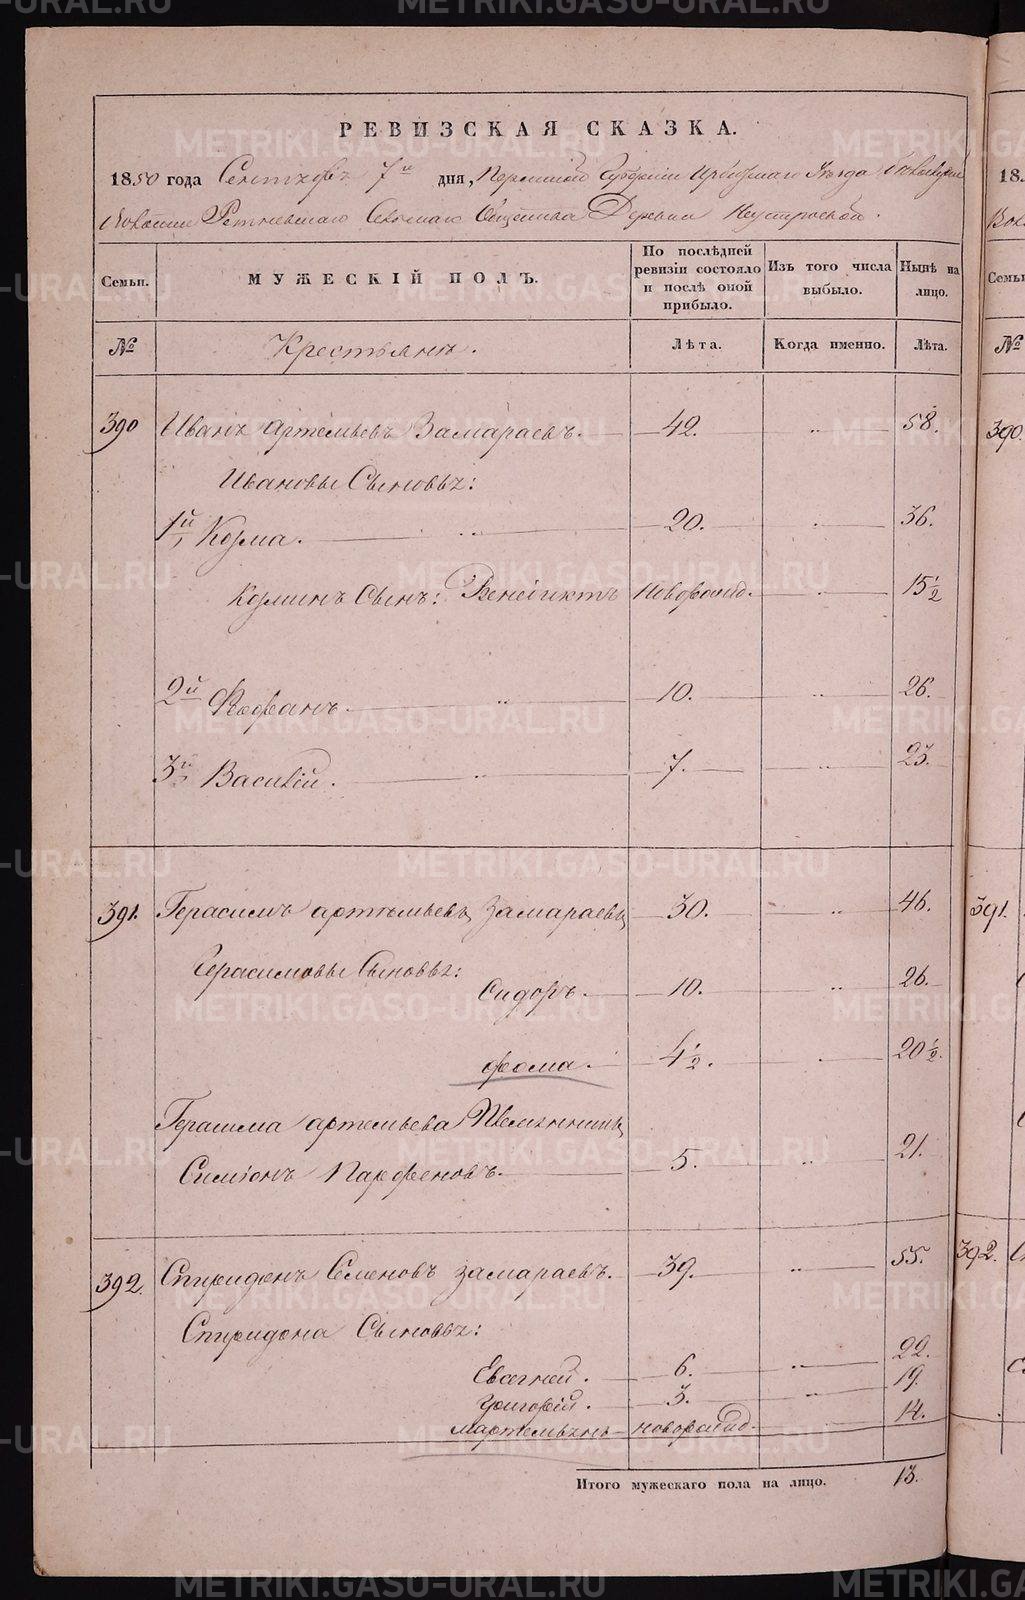 РЕВИЗСКАЯ СКАЗКА.
1850 года Сентября 7го дня, Пермской Губернии Ирбитскаго Уезда
Волости Сельскаго Общества Деревни
Семьи.
МУЖЕСКІЙ ПОЛЪ.
По послѣдней ревизіи состояло и послѣ оной прибыло.
Изъ того числа выбыло.
Нынѣ на лицо.
№
Крестьянъ.
Лѣта.
Когда именно.
Лѣта.
390 Иванъ Артемьевъ Замараевъ. 42. 58.
Ивановы Сыновья:
1й Козма. 20. 36.
Козминъ Сынъ: Венедиктъ новорожд. 15 1/2
2й Феофанъ. 10. 26.
3й Василій. 7. 23.
391. Герасимъ Артемьевъ Замараевъ 30. 46.
Герасимовы Сыновья:
Сидоръ. 10. 26.
Фома. 4 1/2. 20 1/2.
Герасима Артемьева Племянникъ
Симіонъ Парфеновъ. 5. 21.
392. Спиридонъ Семеновъ Замараевъ. 39. 55.
Спиридона Сыновья:
Евсегней. 6. 22.
Григорій. 3. 19.
Мартемьянъ новорожд. 14.
Итого мужескаго пола на лицо. 13.
18.
Семьи
№
390.
391.
392.
METRIKI.GASO-URAL.RU